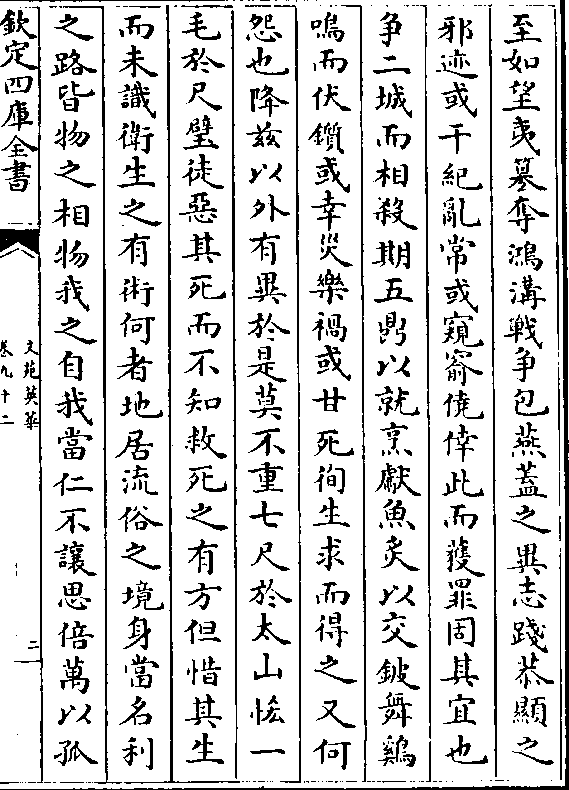 至如望夷簒奪鴻溝戰争包燕蓋之異志踐恭顯之
邪迹或干紀亂常或窺窬僥倖此而䕶罪固其宜也
争二城而相殺期五鼎以就烹獻魚炙以交鈹舞鷄
鳴而伏鑕或幸災樂禍或甘死徇生求而得之又何
怨也降兹以外有異於是莫不重七尺於太山恡一
毛於尺璧徒惡其死而不知救死之有方但惜其生
而未識衛生之有術何者地居流俗之境身當名利
之路皆物之相物我之自我當仁不讓思倍萬以孤
欽定四庫全書
文苑英華
卷九十二
三